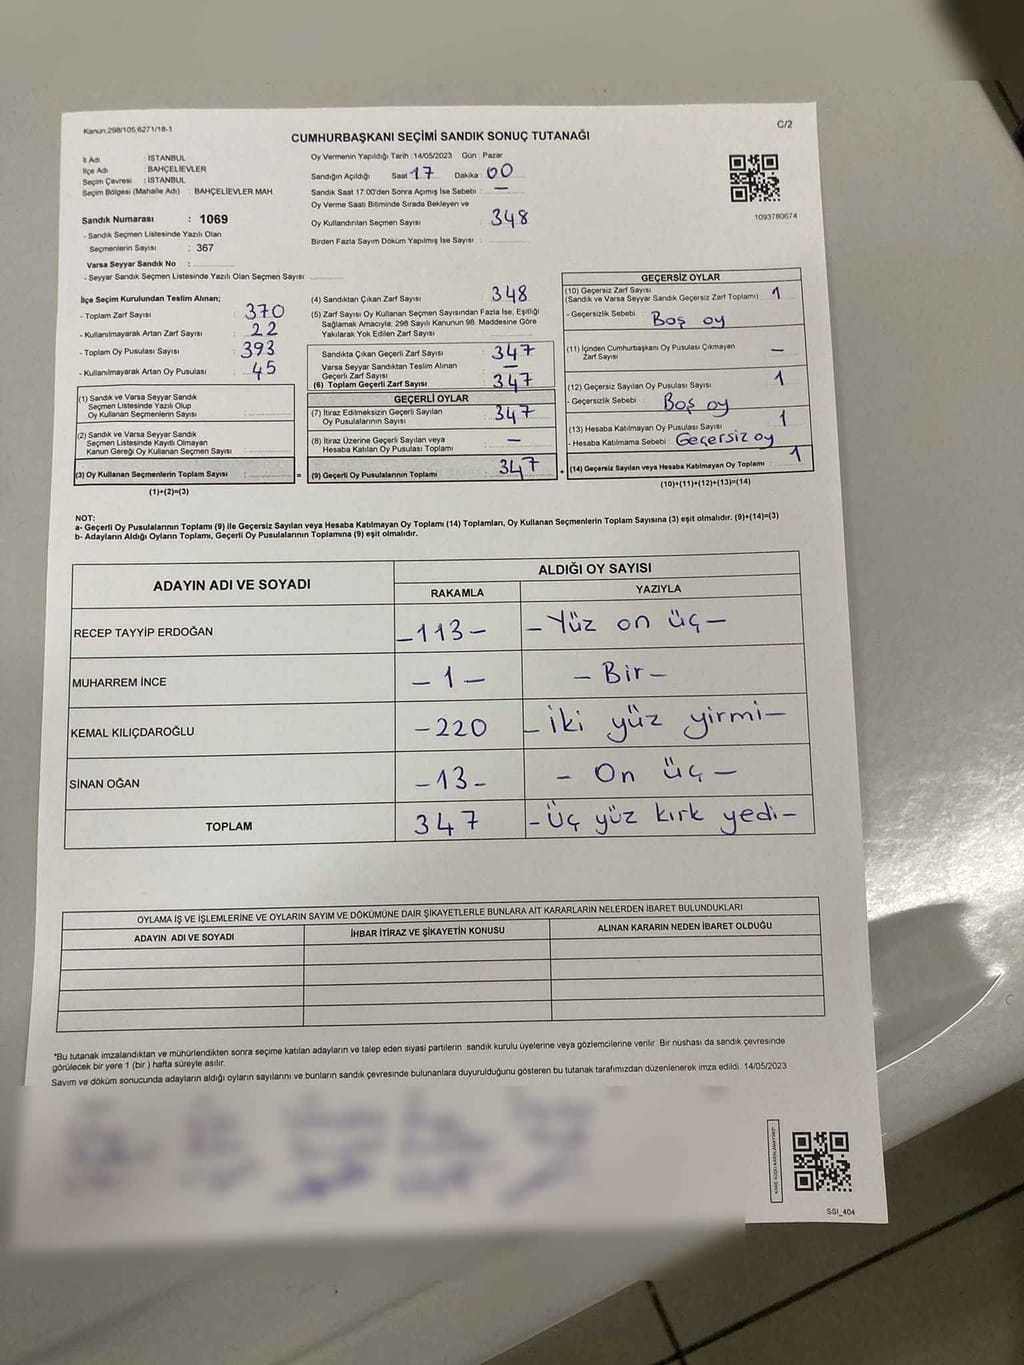 Kanun 298/105,6271/18-1
C/2
CUMHURBAŞKANI SEÇİMİ SANDIK SONUÇ TUTANAĞI
İl Adı : İSTANBUL
İlçe Adı : BAHÇELİEVLER
Seçim Çevresi : İSTANBUL
Seçim Bölgesi (Mahalle Adı) : BAHÇELİEVLER MAH.
Sandık Numarası : 1069
- Sandık Seçmen Listesinde Yazılı Olan
Seçmenlerin Sayısı : 367
Varsa Seyyar Sandık No :
- Seyyar Sandık Seçmen Listesinde Yazılı Olan Seçmen Sayısı :
Oy Vermenin Yapıldığı Tarih : 14/05/2023 Gün : Pazar
Sandığın Açıldığı Saat : 17 Dakika : 00
Sandık Saat 17.00'den Sonra Açımış İse Sebebi : —
Oy Verme Saati Bitiminde Sırada Bekleyen ve
Oy Kullandırılan Seçmen Sayısı : 348
Birden Fazla Sayım Döküm Yapılmış İse Sayısı :
1093780674
İlçe Seçim Kurulundan Teslim Alınan;
- Toplam Zarf Sayısı : 370
- Kullanılmayarak Artan Zarf Sayısı : 22
- Toplam Oy Pusulası Sayısı : 393
- Kullanılmayarak Artan Oy Pusulası : 45
(1) Sandık ve Varsa Seyyar Sandık
Seçmen Listesinde Yazılı Olup
Oy Kullanan Seçmenlerin Sayısı :
(2) Sandık ve Varsa Seyyar Sandık
Seçmen Listesinde Kayıtlı Olmayan
Kanun Gereği Oy Kullanan Seçmen Sayısı :
(3) Oy Kullanan Seçmenlerin Toplam Sayısı :
(1)+(2)=(3)
(4) Sandıktan Çıkan Zarf Sayısı : 348
(5) Zarf Sayısı Oy Kullanan Seçmen Sayısından Fazla İse, Eşitliği
Sağlamak Amacıyla; 298 Sayılı Kanunun 98. Maddesine Göre
Yakılarak Yok Edilen Zarf Sayısı :
Sandıkta Çıkan Geçerli Zarf Sayısı : 347
Varsa Seyyar Sandıktan Teslim Alınan
Geçerli Zarf Sayısı : —
(6) Toplam Geçerli Zarf Sayısı : 347
GEÇERLİ OYLAR
(7) İtiraz Edilmeksizin Geçerli Sayılan
Oy Pusulalarının Sayısı : 347
(8) İtiraz Üzerine Geçerli Sayılan veya
Hesaba Katılan Oy Pusulası Toplamı : —
= (9) Geçerli Oy Pusulalarının Toplamı : 347
GEÇERSİZ OYLAR
(10) Geçersiz Zarf Sayısı
(Sandık ve Varsa Seyyar Sandık Geçersiz Zarf Toplamı) : 1
- Geçersizlik Sebebi : Boş oy
(11) İçinden Cumhurbaşkanı Oy Pusulası Çıkmayan
Zarf Sayısı : —
(12) Geçersiz Sayılan Oy Pusulası Sayısı : 1
- Geçersizlik Sebebi : Boş oy
(13) Hesaba Katılmayan Oy Pusulası Sayısı : 1
- Hesaba Katılmama Sebebi : Geçersiz oy
+ (14) Geçersiz Sayılan veya Hesaba Katılmayan Oy Toplamı : 1
(10)+(11)+(12)+(13)=(14)
NOT:
a- Geçerli Oy Pusulalarının Toplamı (9) ile Geçersiz Sayılan veya Hesaba Katılmayan Oy Toplamı (14) Toplamları, Oy Kullanan Seçmenlerin Toplam Sayısına (3) eşit olmalıdır. (9)+(14)=(3)
b- Adayların Aldığı Oyların Toplamı, Geçerli Oy Pusulalarının Toplamına (9) eşit olmalıdır.
ADAYIN ADI VE SOYADI
ALDIĞI OY SAYISI
RAKAMLA YAZIYLA
RECEP TAYYİP ERDOĞAN -113- - Yüz on üç -
MUHARREM İNCE - 1 - - Bir -
KEMAL KILIÇDAROĞLU -220 - iki yüz yirmi -
SİNAN OĞAN -13- - On üç -
TOPLAM 347 - Üç yüz kırk yedi -
OYLAMA İŞ VE İŞLEMLERİNE VE OYLARIN SAYIM VE DÖKÜMÜNE DAİR ŞİKAYETLERLE BUNLARA AİT KARARLARIN NELERDEN İBARET BULUNDUKLARI
ADAYIN ADI VE SOYADI İHBAR İTİRAZ VE ŞİKAYETİN KONUSU ALINAN KARARIN NEDEN İBARET OLDUĞU
*Bu tutanak imzalandıktan ve mühürlendikten sonra seçime katılan adayların ve talep eden siyasi partilerin sandık kurulu üyelerine veya gözlemcilerine verilir. Bir nüshası da sandık çevresinde
görülecek bir yere 1 (bir) hafta süreyle asılır.
Sayım ve döküm sonucunda adayların aldığı oyların sayılarını ve bunların sandık çevresinde bulunanlara duyurulduğunu gösteren bu tutanak tarafımızdan düzenlenerek imza edildi. 14/05/2023
SGI_404